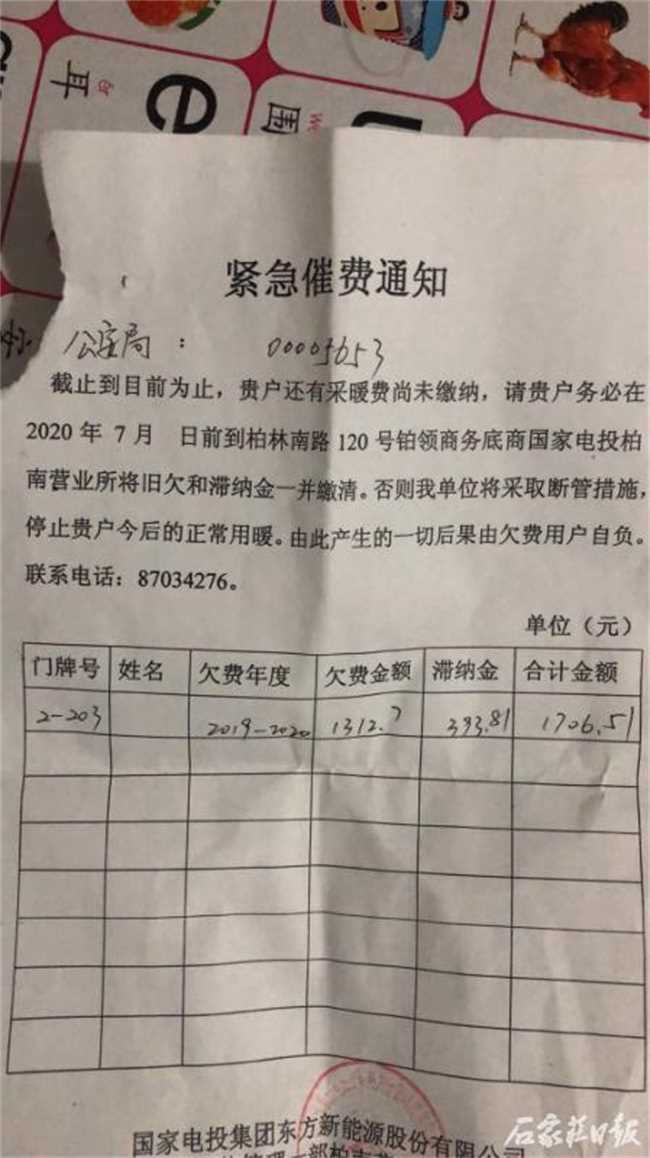 耳
ěr
e
围
紧急催费通知
公定局 : 00005653
截止到目前为止，贵户还有采暖费尚未缴纳，请贵户务必在
2020 年 7 月 日前到柏林南路 120 号铂领商务底商国家电投柏
南营业所将旧欠和滞纳金一并缴清。否则我单位将采取断管措施，
停止贵户今后的正常用暖。由此产生的一切后果由欠费用户自负。
联系电话：87034276。
单位（元）
门牌号 姓名 欠费年度 欠费金额 滞纳金 合计金额
2-203 2019-2020 1312.7 393.81 1706.51
国家电投集团东方新能源股份有限公司
石家庄日报